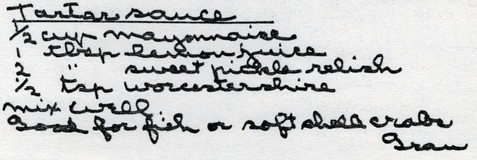 Tartar sauce
1/2 cup mayonnaise
1 tbsp lemon juice
2 " sweet pickle relish
1/2 tsp worcestershire
mix well
Good for fish or soft shell crabs
Gran